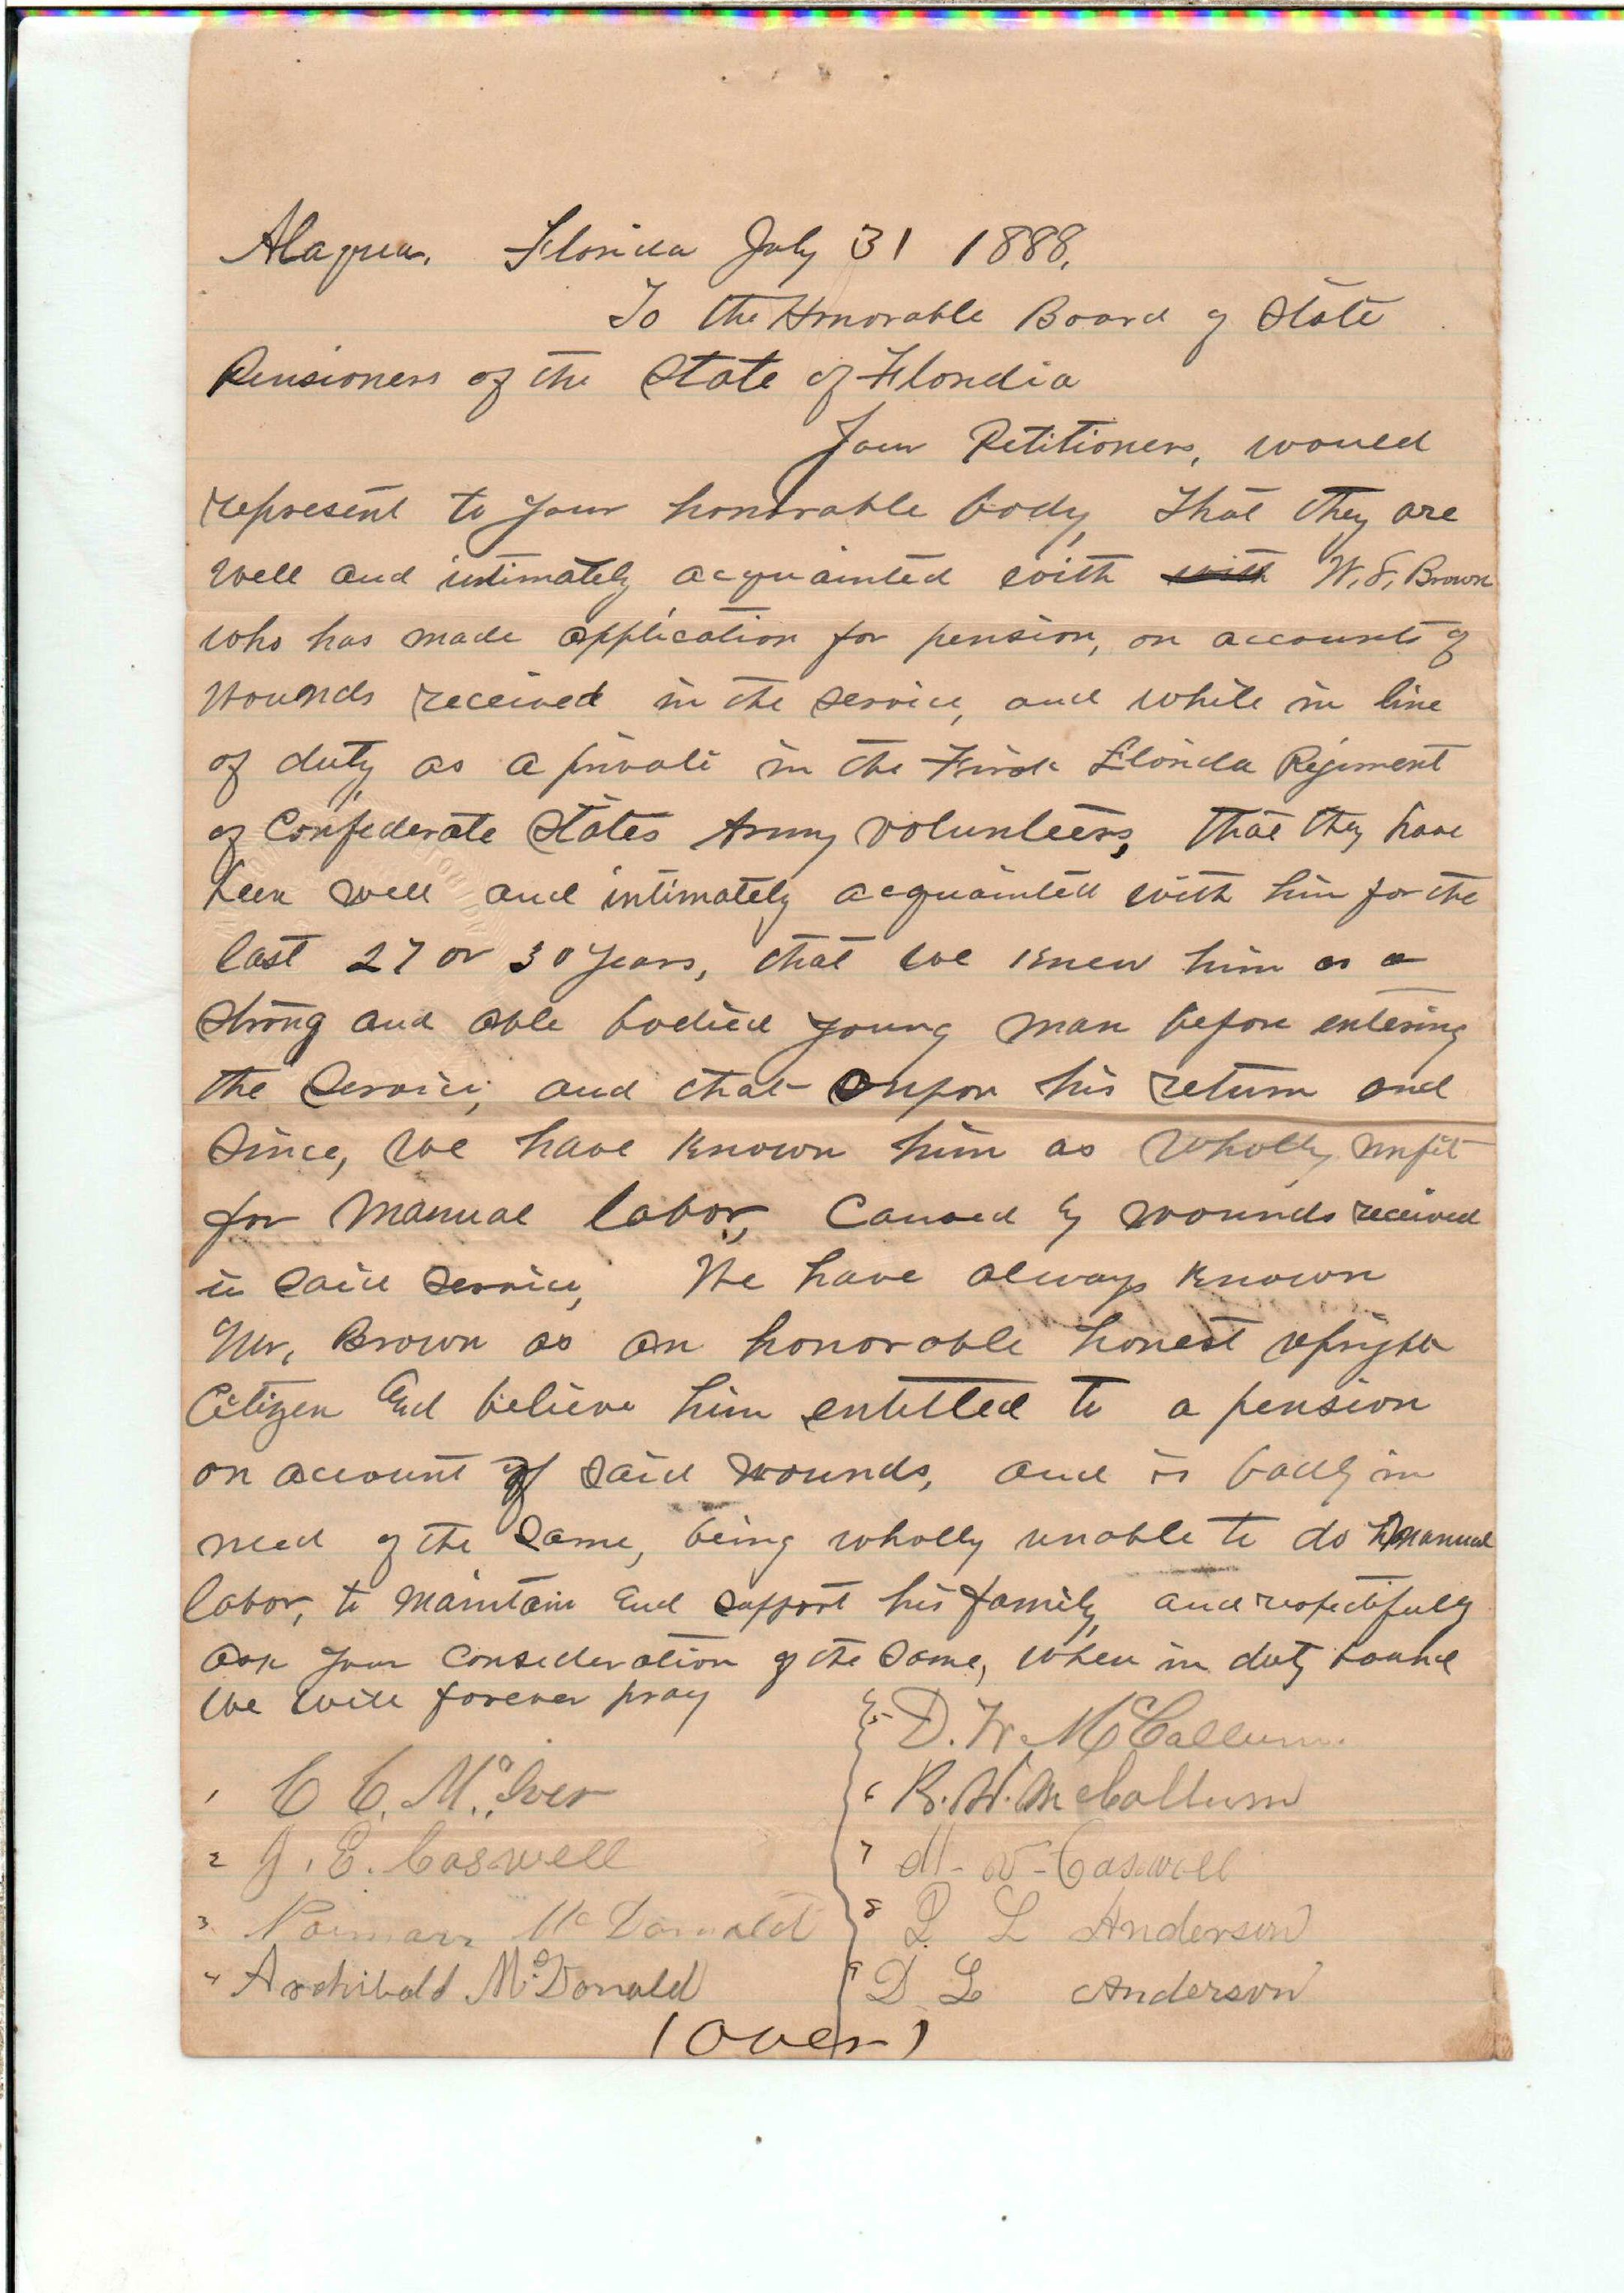 Alaqua, Florida July 31 1888,
To the Honorable Board of State
Pensioners of the State of Flondia
Your Petitioners, would
represent to your honorable body, that they are
well and intimately acquainted with with W. S. Brown
who has made application for pension, on accounts of
wounds received in the service, and while in line
of duty, as a private in the First Florida Regiment
of Confederate States Army volunteers, that they have
been well and intimately acquainted with him for the
last 27 or 30 years, that we knew him as a
strong and able bodied young man before entering
the service, and that upon his return and
since, we have known him as wholly unfit
for manual labor, caused by wounds received
in said service, We have always known
Mr, Brown as an honorable honest upright
Citizen and believe him entitled to a pension
on account of said wounds, and is badly in
need of the same, being wholly unable to do manual
labor, to maintain and support his family, and respectifully
ask your consideration of the same, when in duty bound
we will forever pray
1 C C. McIver
2 J. E. Caswell
3 Norman McDonald
4 Archibald McDonald
5 D. W. McCallum.
6 R. W. McCallum
7 M- V- Caswell
8 L Anderson
9 D L Anderson
(Over)